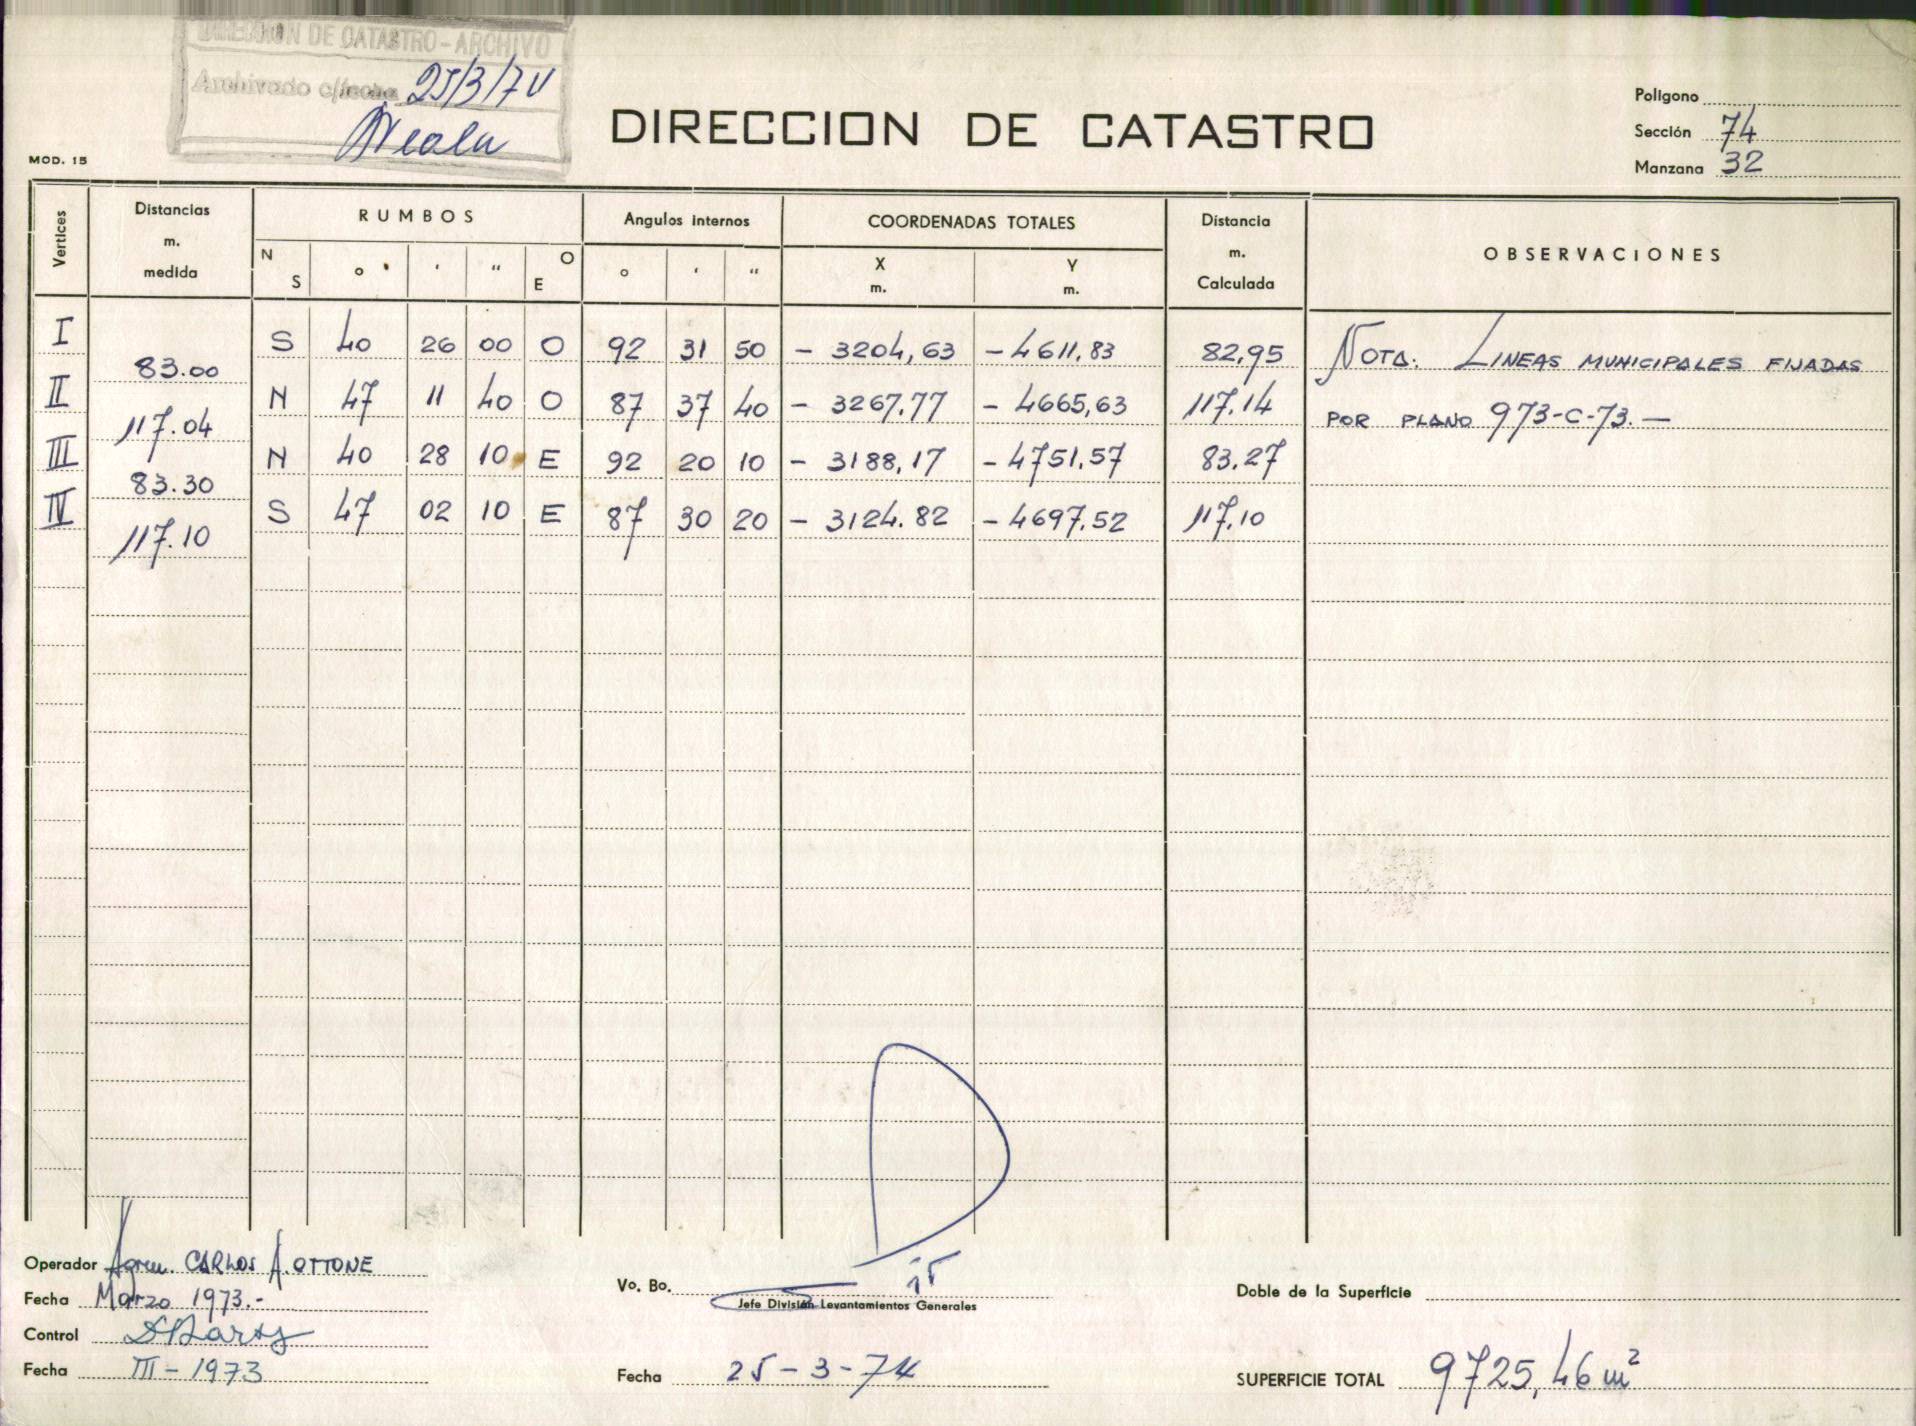 DIRECCION DE CATASTRO - ARCHIVO
Archivado c/fecha 25/3/74
MOD. 15
DIRECCION DE CATASTRO
Poligono
Sección 74
Manzana 32
Vertices Distancias m. medida RUMBOS Angulos internos COORDENADAS TOTALES Distancia m. Calculada OBSERVACIONES
N S o ' " O E o ' " X m. Y m.
I S 40 26 00 O 92 31 50 - 3204,63 - 4611,83 82,95 NOTA: LINEAS MUNICIPALES FIJADAS
83.00
II N 47 11 40 O 87 37 40 - 3267.77 - 4665,63 117.14 POR PLANO 973-C-73.—
117.04
III N 40 28 10 E 92 20 10 - 3188,17 - 4751.57 83.27
83.30
IV S 47 02 10 E 87 30 20 - 3124.82 - 4697.52 117.10
117.10
Operador Agrim. CARLOS A. OTTONE
Fecha Marzo 1973.-
Control
Fecha III - 1973
Vo. Bo.
Jefe División Levantamientos Generales
Fecha 25 - 3 - 74
Doble de la Superficie
SUPERFICIE TOTAL 9725,46 m²